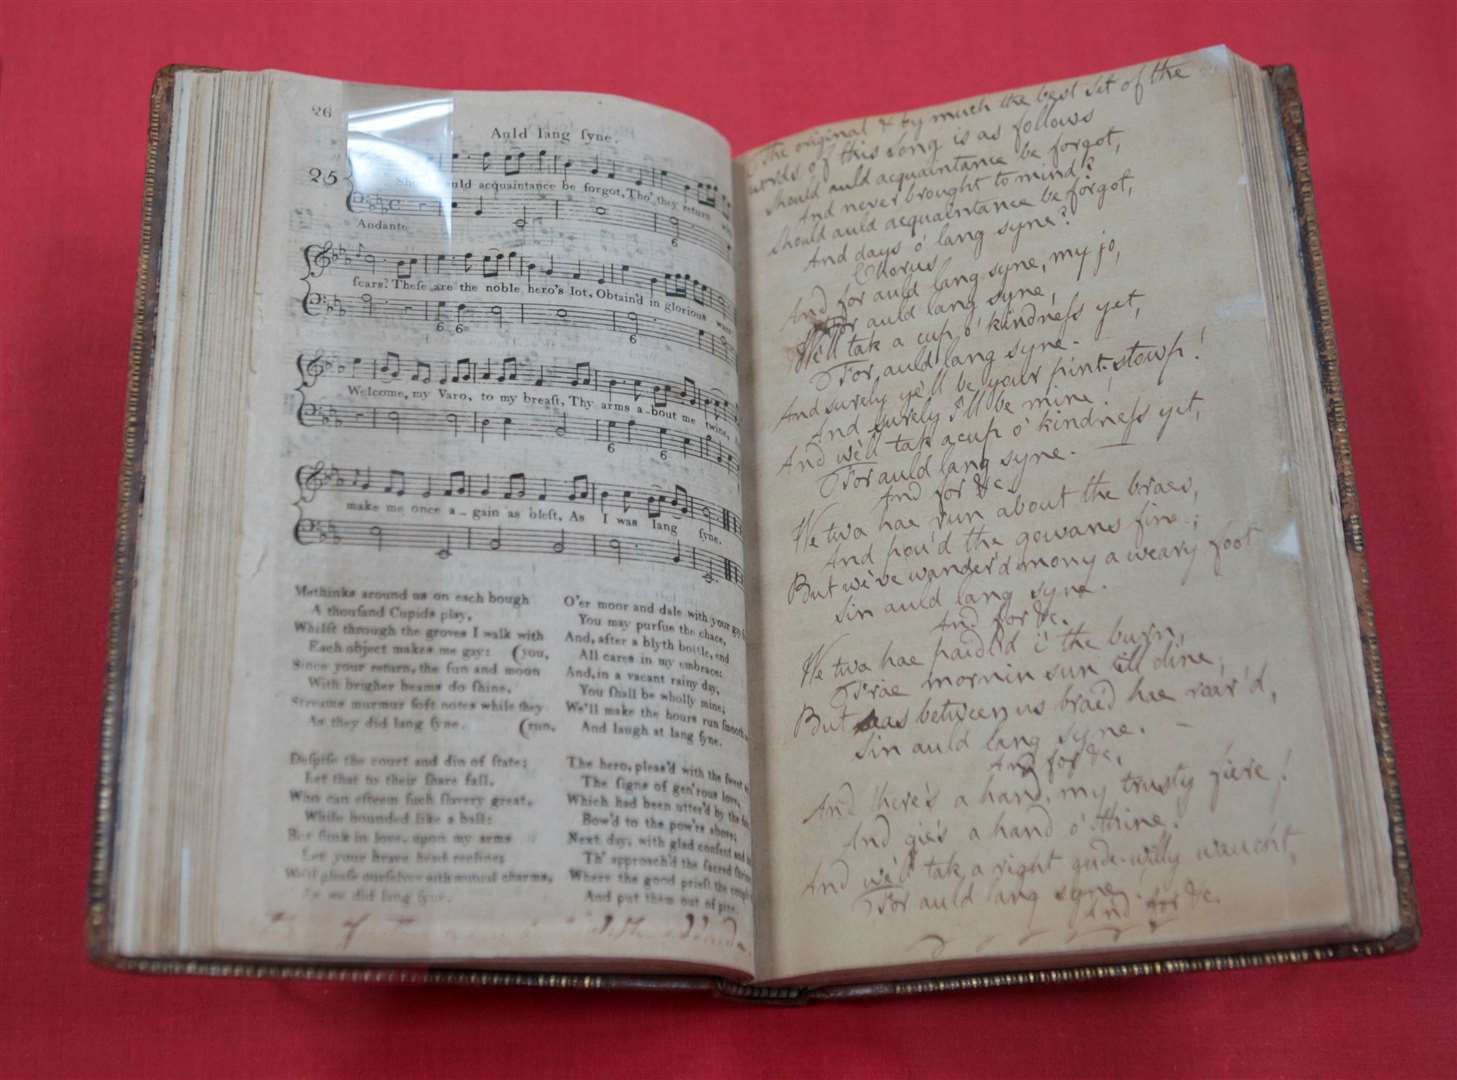 26
Auld lang ſyne.
25
auld acquaintance be forgot, Tho' they return
Andante
6
ſcars? Theſe are the noble hero's lot, Obtain'd in glorious wars
6 6
6
Welcome, my Varo, to my breaſt, Thy arms a-bout me twine,
6 6
make me once a-gain as bleſt, As I was lang ſyne.
Methinks around us on each bough
A thouſand Cupids play,
Whilſt through the groves I walk with
Each object makes me gay: (you,
Since your return, the ſun and moon
With brigher beams do ſhine,
Streams murmur ſoft notes while they
As they did lang ſyne. (run,
Deſpiſe the court and din of ſtate;
Let that to their ſhare fall,
Who can eſteem ſuch ſlavery great,
While bounded like a ball:
But ſunk in love, upon my arms
Let your brave head recline;
We'll pleaſe ourſelves with mutual charms,
As we did lang ſyne.
O'er moor and dale with your gay
You may purſue the chace,
And, after a blyth bottle, end
All cares in my embrace:
And, in a vacant rainy day,
You ſhall be wholly mine;
We'll make the hours run ſmooth
And laugh at lang ſyne.
The hero, pleas'd with the ſweet
The ſigns of gen'rous love,
Which had been utter'd by the
Bow'd to the pow'rs above;
Next day, with glad conſent and
Th' approach'd the ſacred
Where the good prieſt the
And put them out of pine.
The original & by much the best set of the
words of this song is as follows
Should auld acquaintance be forgot,
And never brought to mind?
Should auld acquaintance be forgot,
And days o' lang syne?
Chorus
And for auld lang syne, my jo,
For auld lang syne,
We'll tak a cup o' kindneſs yet,
For auld lang syne. -
And surely ye'll be your pint-stowp!
And surely I'll be mine!
And we'll tak a cup o' kindneſs yet,
For auld lang syne. —
And for &c.
We twa hae run about the braes,
And pou'd the gowans fine;
But we've wander'd mony a weary foot
Sin auld lang syne.
And for &c.
We twa hae paidl'd i' the burn,
Frae mornin sun till dine;
But seas between us braid hae roar'd,
Sin auld lang syne. -
And for &c.
And there's a hand, my trusty fiere!
And gie's a hand o' thine!
And we'll tak a right gude-willy waught,
For auld lang syne.
And for &c.